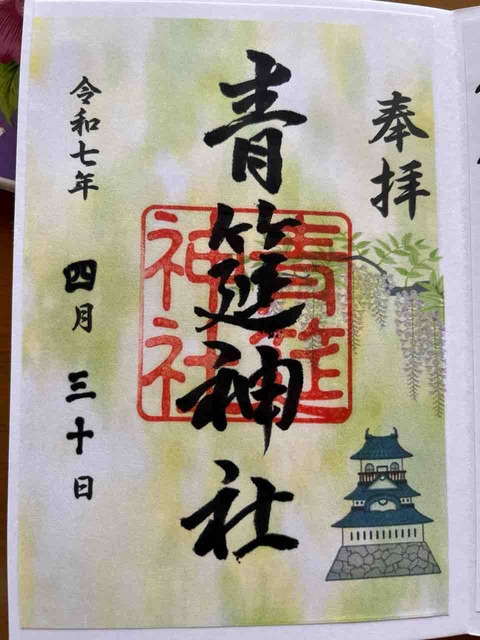 奉拝
青筵神社
青筵
神社
令和七年 四月 三十日